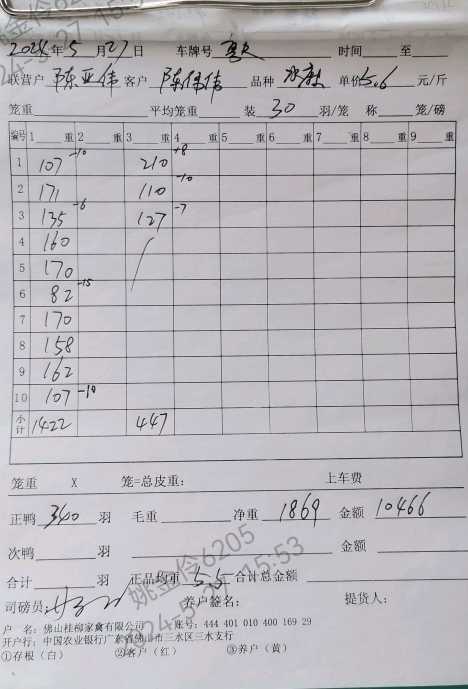 2024年5月27日 车牌号 时间 至
联营户 陈亚伟 客户 陈伟伟 品种 单价5.6 元/斤
笼重 平均笼重 装 30 羽/笼 称 笼/磅
编号 1 重 2 重 3 重 4 重 5 重 6 重 7 重 8 重 9 重
1 107 -10 210 +8
2 171 110 -10
3 135 -6 127 -7
4 160
5 170
6 82 -15
7 170
8 158
9 162
10 107 -10
小计 1422 447
笼重 X 笼=总皮重: 上车费
正鸭 340 羽 毛重 净重 1869 金额 10466
次鸭 羽 金额
合计 羽 正品均重 5.5 合计总金额
司磅员: 养户签名: 提货人:
户 名: 佛山桂柳家禽有限公司 账号: 444 401 010 400 169 29
开户行: 中国农业银行广东省佛山市三水区三水支行
①存根(白) ②客户(红) ③养户(黄)
姚金伶6205
2024-5-27 15:53